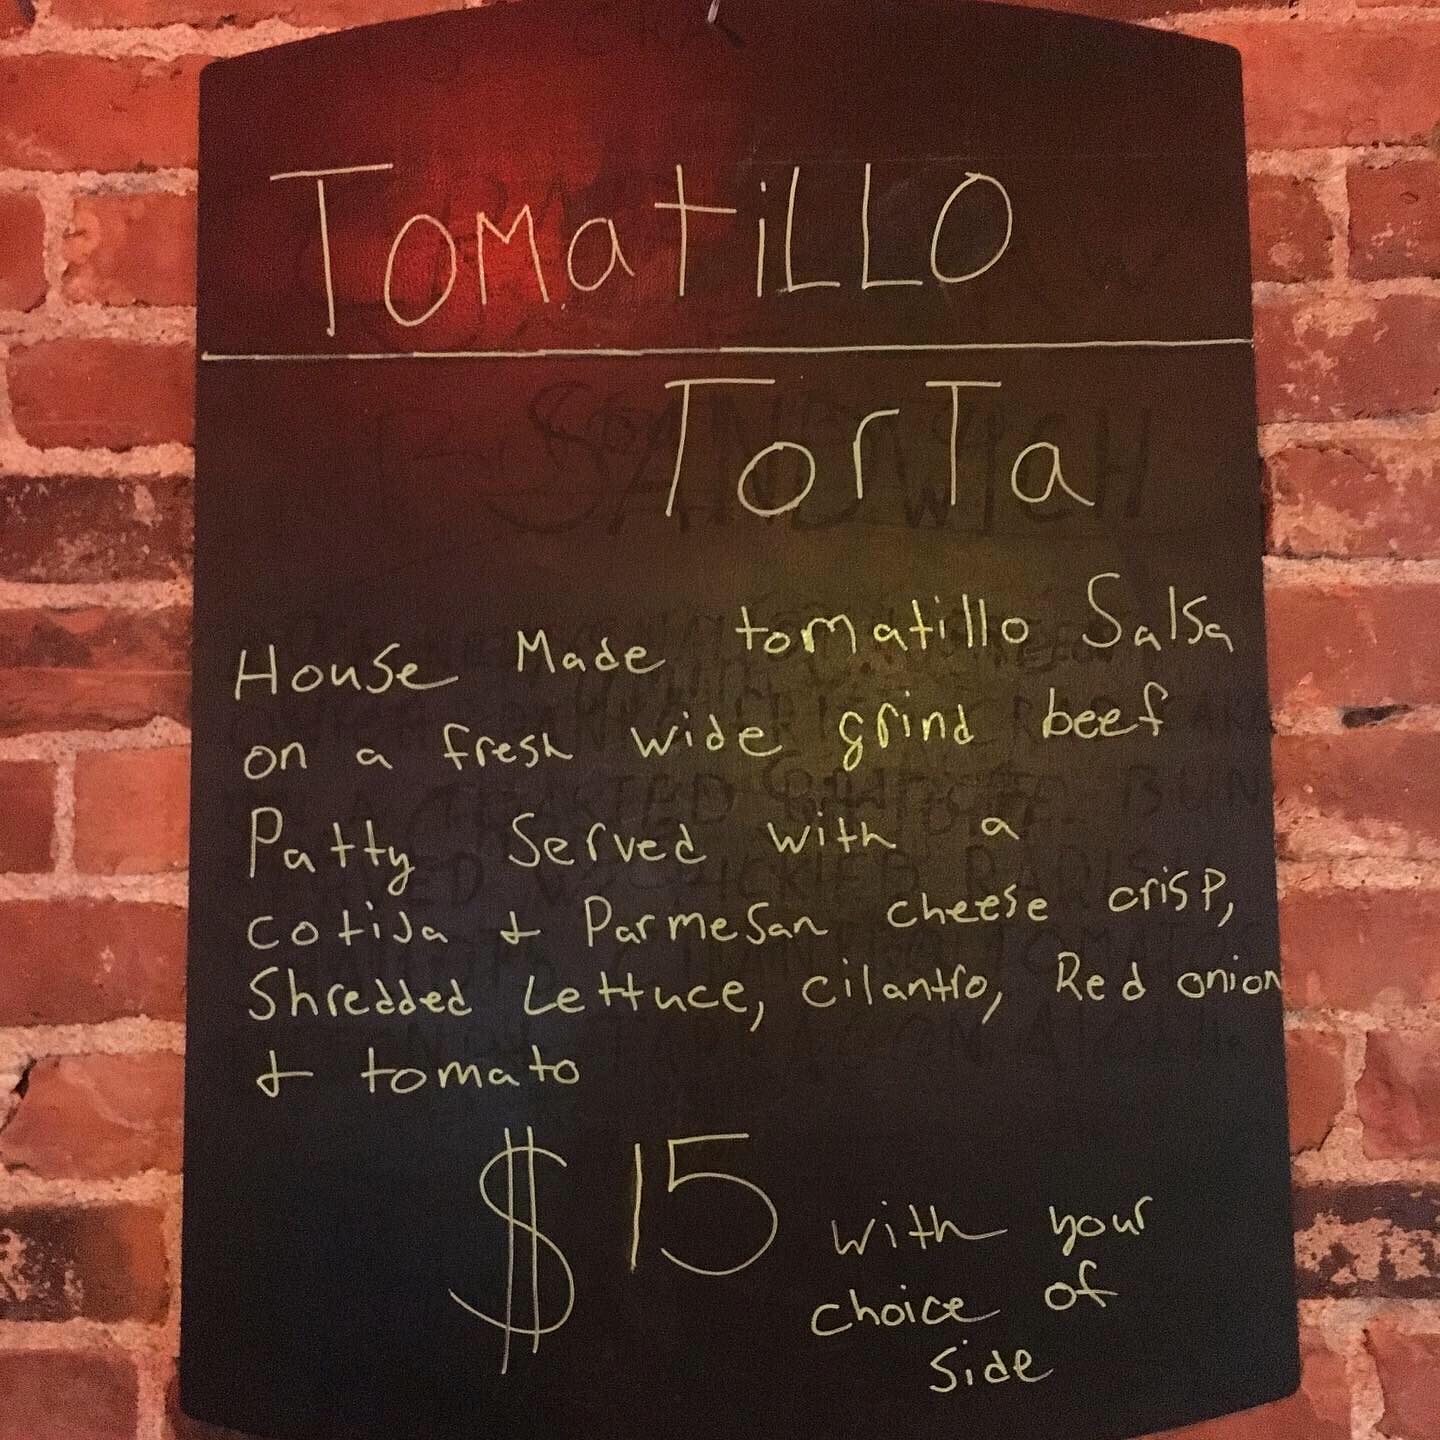 TomatiLLO
TorTa
House Made tomatillo Salsa
on a fresh wide grind beef
Patty Served with a
cotija & Parmesan cheese crisp,
Shredded Lettuce, cilantro, Red onion
& tomato
$15 with your
choice of
side